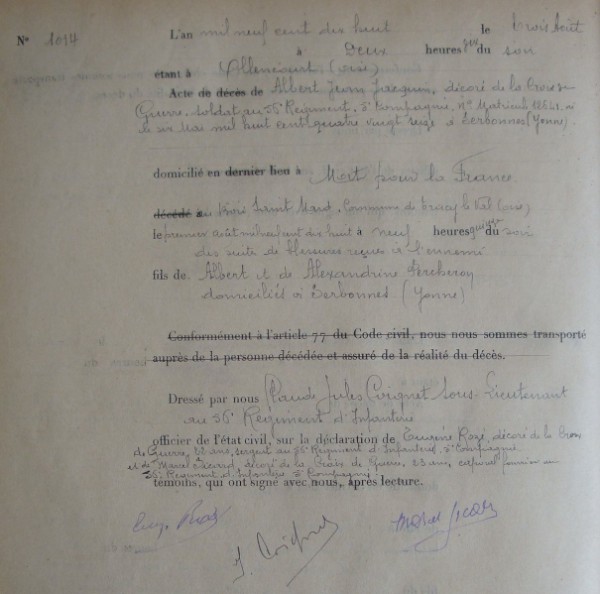 N° 1014 L'an mil neuf cent dix huit le trois août
à Deux heures du soir
étant à (oise)
Acte de décès de Albert Jean Jacquin, décoré de la Croix de
Guerre, soldat au 56 Régiment, 5e Compagnie, N° Matricule né
le six Mai mil huit cent quatre vingt seize à Serbonnes (Yonne).
domicilié en dernier lieu à Mort pour la France
décédé au Bois Saint Mard, Commune de Tracy le Val (oise)
le premier août mil neuf cent dix huit à neuf heures quinze du soir
des suite de blessures reçues à l'ennemi
fils de Albert et de Alexandrine Percheron
domiciliés à Serbonnes (Yonne)
Conformément à l'article 77 du Code civil, nous nous sommes transporté
auprès de la personne décédée et assuré de la réalité du décès.
Dressé par nous Claude Jules Coignet Sous-Lieutenant
au 56e Régiment d'Infanterie
officier de l'état civil, sur la déclaration de Eugène décoré de la Croix
de Guerre, ans, sergent au 56e Régiment d'Infanterie, 5e Compagnie
et de Marcel décoré de la Croix de Guerre, 23 ans, caporal fourrier au
56e Régiment d'Infanterie 5e Compagnie
témoins, qui ont signé avec nous, après lecture.
J. Coignet